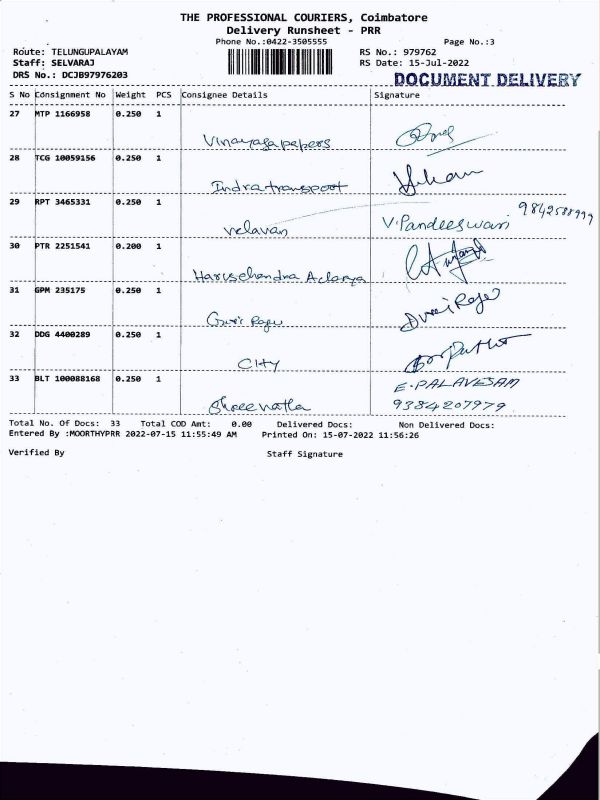 THE PROFESSIONAL COURIERS, Coimbatore
Delivery Runsheet - PRR
Phone No.:0422-3505555 Page No.:3
Route: TELUNGUPALAYAM RS No.: 979762
Staff: SELVARAJ RS Date: 15-Jul-2022
DRS No.: DCJB97976203 DOCUMENT DELIVERY
S No Consignment No Weight PCS Consignee Details Signature
27 MTP 1166958 0.250 1
Vinayaga papers
28 TCG 10059156 0.250 1
Indra transport
29 RPT 3465331 0.250 1 9842588999
Velavan V.Pandeeswari
30 PTR 2251541 0.200 1
Harischandra Aclarya
31 GPM 235175 0.250 1
32 DDG 4400289 0.250 1
City
33 BLT 100088168 0.250 1 E.PALAVESAM
Shree natha 9384207979
Total No. Of Docs: 33 Total COD Amt: 0.00 Delivered Docs: Non Delivered Docs:
Entered By :MOORTHYPRR 2022-07-15 11:55:49 AM Printed On: 15-07-2022 11:56:26
Verified By Staff Signature